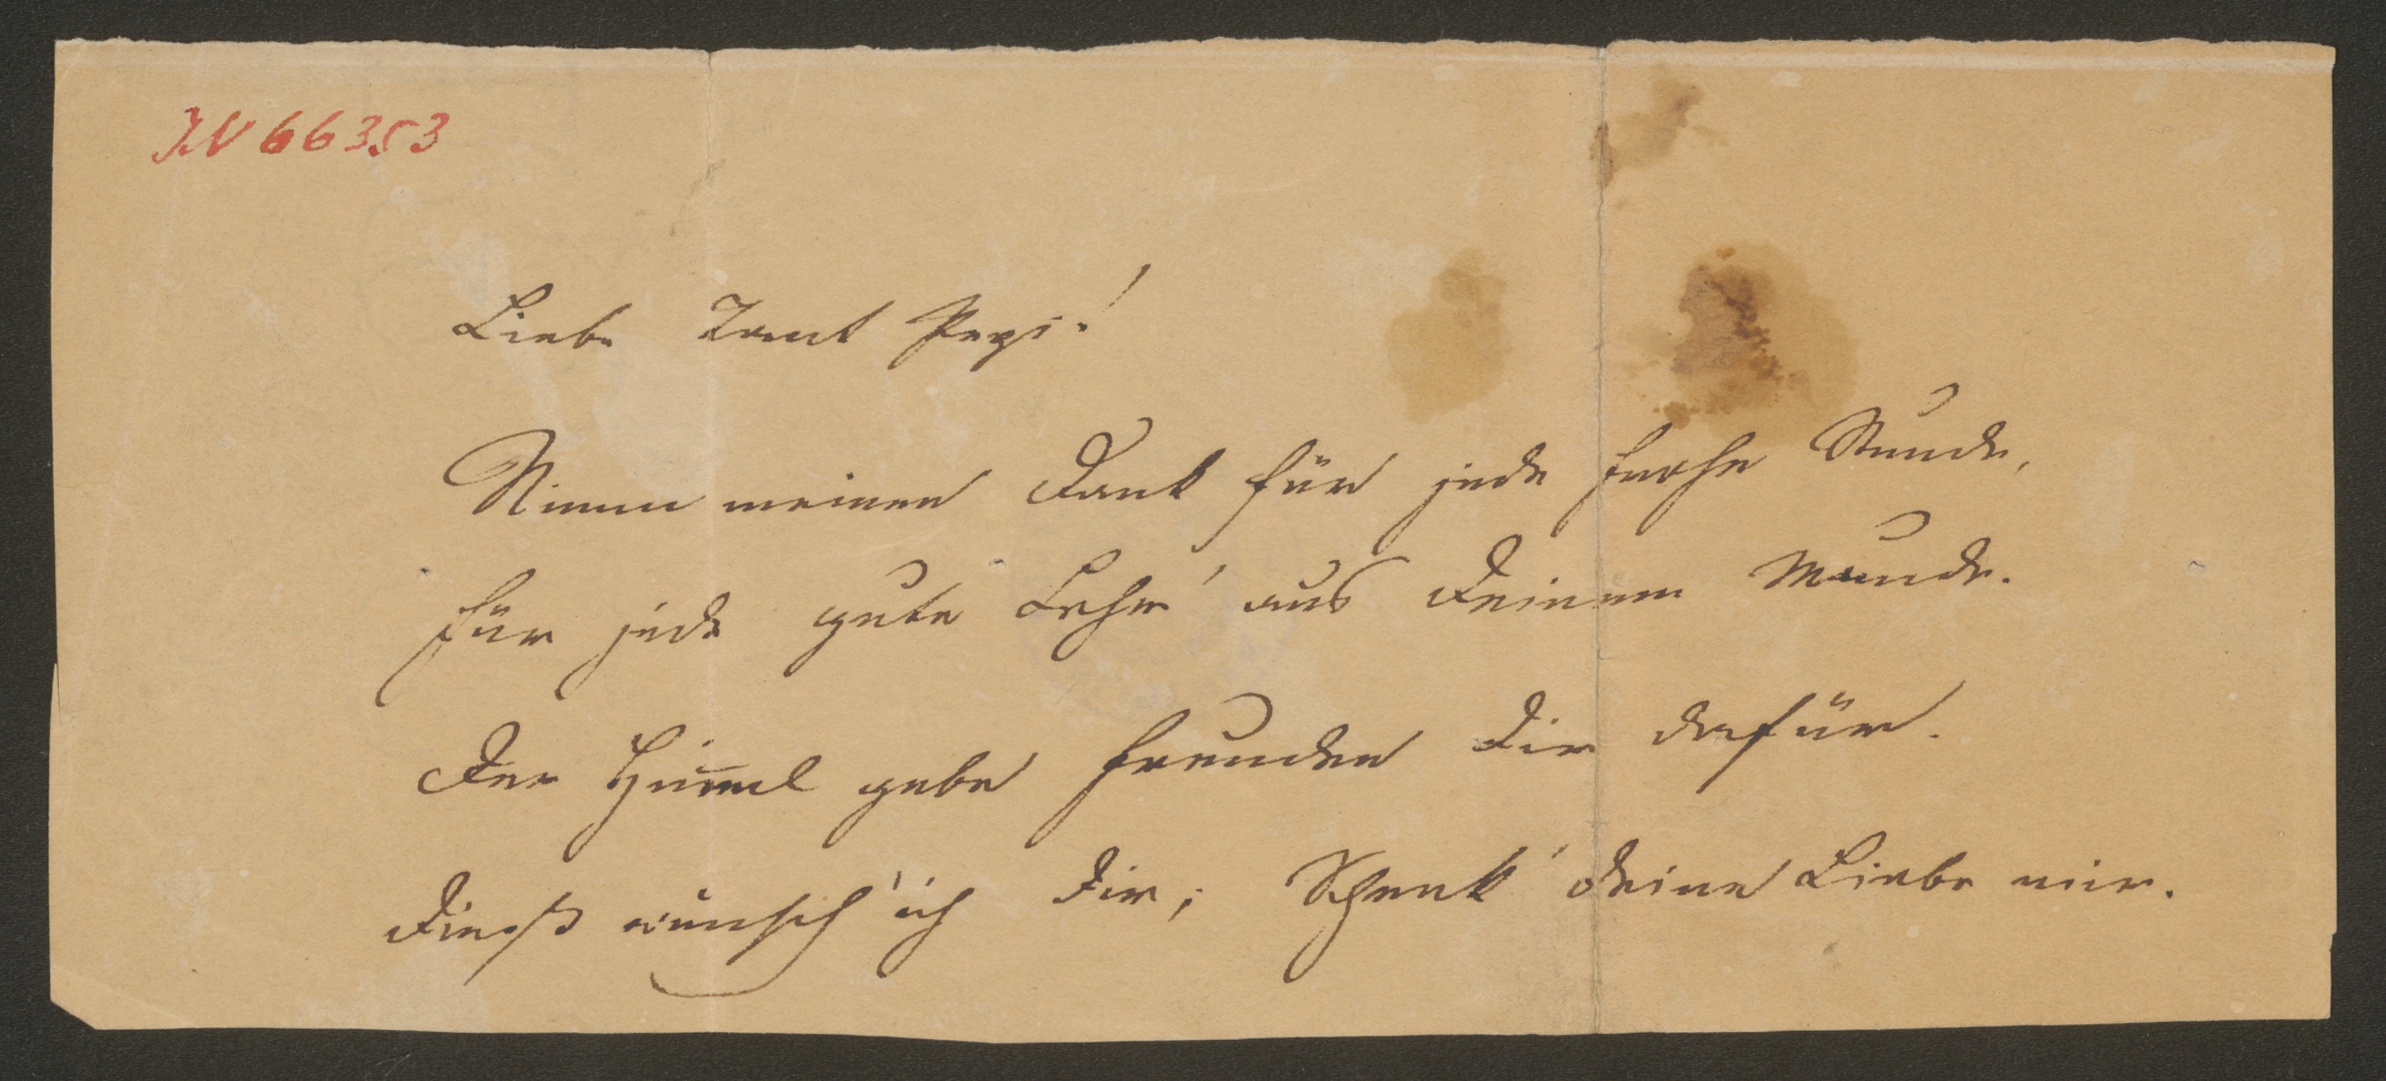 JN 66353
Liebe Tant Pepi!
Nimm meinen Dank für jede frohe Stunde,
für jede gute Lehr' aus Deinem Munde.
Der Him̅el gebe Freuden Dir dafür.
Dieß wünsch' ich Dir; Schenk' Deine Liebe mir.